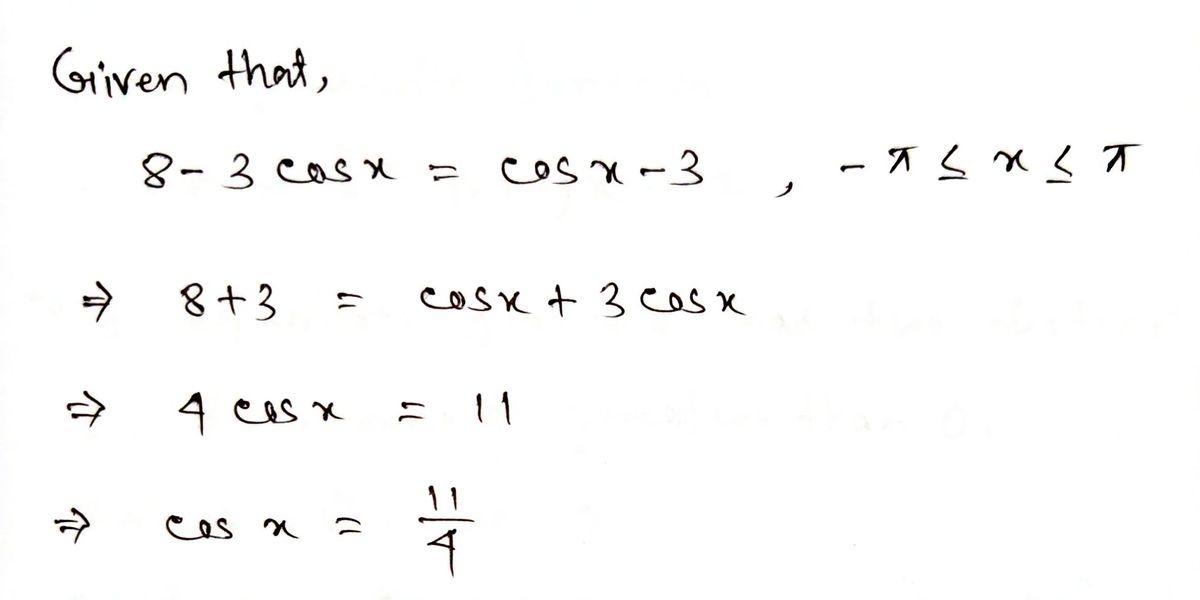 Given that,
8 - 3 cos x = cos x - 3 , - π ≤ x ≤ π
⇒ 8 + 3 = cos x + 3 cos x
⇒ 4 cos x = 11
⇒ cos x = 11/4